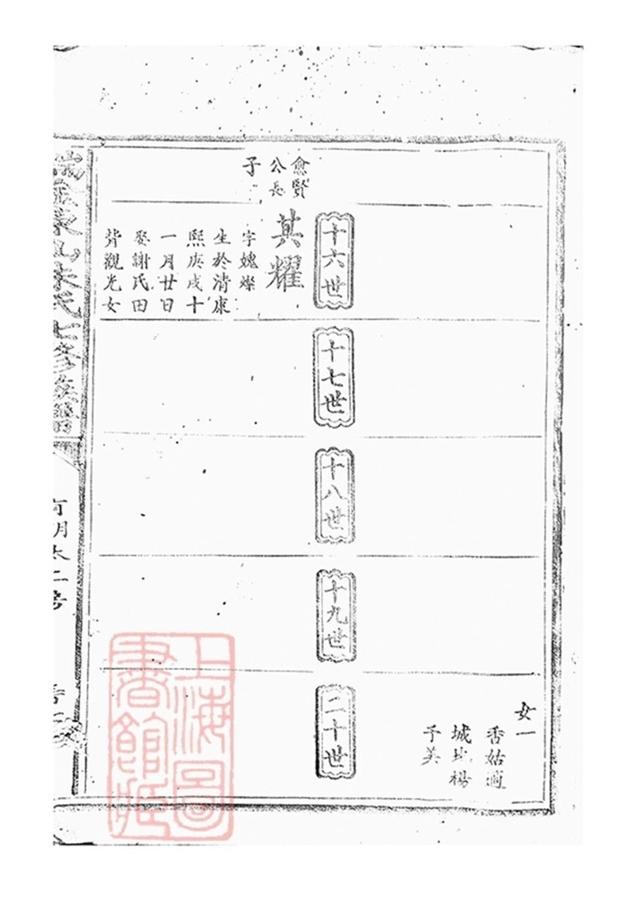 女一
香姑適
城 楊
子美
十六世
十七世
十八世
十九世
二十世
愈賢
公長
子
其耀
字媿燦
生於清康
熙庚戌十
一月廿日
娶謝氏田
背觀光女
朱氏七修族譜
上海圖
書館藏